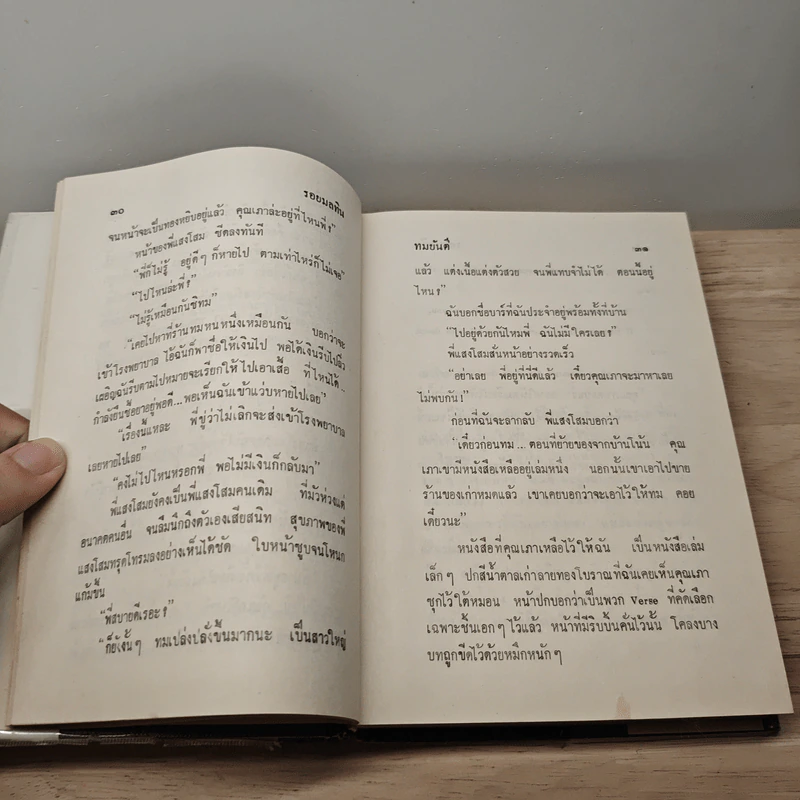 ๓๐
รอยมลทิน
จนหน้าจะเป็นทองหยิบอยู่แล้ว คุณเภาล่ะอยู่ที่ไหนพี่?”
หน้าของพี่แสงโสม ซีดลงทันที
“พี่ก็ไม่รู้ อยู่ดีๆ ก็หายไป ตามเท่าไหร่ก็ไม่เจอ”
“ไปไหนล่ะพี่?”
“ไม่รู้เหมือนกันซิทม”
“เคยไปหาที่ร้านทมหนหนึ่งเหมือนกัน บอกว่าจะ
เข้าโรงพยาบาล ไอ้ฉันก็พาซื่อให้เงินไป พอได้เงินรีบไปลิ่ว
เผอิญฉันรีบตามไปหมายจะเรียกให้ไปเอาเสื้อ ที่ไหนได้ ..
กำลังยืนซื้อยาอยู่พอดี...พอเห็นฉันเข้าแว่บหายไปเลย”
“เรื่องนี้แหละ พี่ขู่ว่าไม่เลิกจะส่งเข้าโรงพยาบาล
เลยหายไปเลย”
“คงไม่ไปไหนหรอกพี่ พอไม่มีเงินก็กลับมา”
พี่แสงโสมยังคงเป็นพี่แสงโสมคนเดิม ที่มัวห่วงแต่
อนาคตคนอื่น จนลืมนึกถึงตัวเองเสียสนิท สุขภาพของพี่
แสงโสมทรุดโทรมลงอย่างเห็นได้ชัด ใบหน้าซูบจนโหนก
แก้มขึ้น
“พี่สบายดีเรอะ?”
“ก็ยังงั้นๆ ทมเปล่งปลั่งขึ้นมากนะ เป็นสาวใหญ่
ทมยันตี
๓๑
แล้ว แต่งเนื้อแต่งตัวสวย จนพี่แทบจำไม่ได้ ตอนนี้อยู่
ไหน?”
ฉันบอกชื่อบาร์ที่ฉันประจำอยู่พร้อมทั้งที่บ้าน
“ไปอยู่ด้วยกันไหมพี่ ฉันไม่มีใครเลย?”
พี่แสงโสมสั่นหน้าอย่างรวดเร็ว
“อย่าเลย พี่อยู่ที่นี่ดีแล้ว เดี๋ยวคุณเภาจะมาหาเลย
ไม่พบกัน!”
ก่อนที่ฉันจะลากลับ พี่แสงโสมบอกว่า
“เดี๋ยวก่อนทม... ตอนที่ย้ายของจากบ้านโน้น คุณ
เภาเขามีหนังสือเหลืออยู่เล่มหนึ่ง นอกนั้นเขาเอาไปขาย
ร้านของเก่าหมดแล้ว เขาเคยบอกว่าจะเอาไว้ให้ทม คอย
เดี๋ยวนะ”
หนังสือที่คุณเภาเหลือไว้ให้ฉัน เป็นหนังสือเล่ม
เล็กๆ ปกสีน้ำตาลเก่าลายทองโบราณที่ฉันเคยเห็นคุณเภา
ซุกไว้ใต้หมอน หน้าปกบอกว่าเป็นพวก Verse ที่คัดเลือก
เฉพาะชั้นเอกๆ ไว้แล้ว หน้าที่มีริบบิ้นคั่นไว้นั้น โคลงบาง
บทถูกขีดไว้ด้วยหมึกหนักๆ